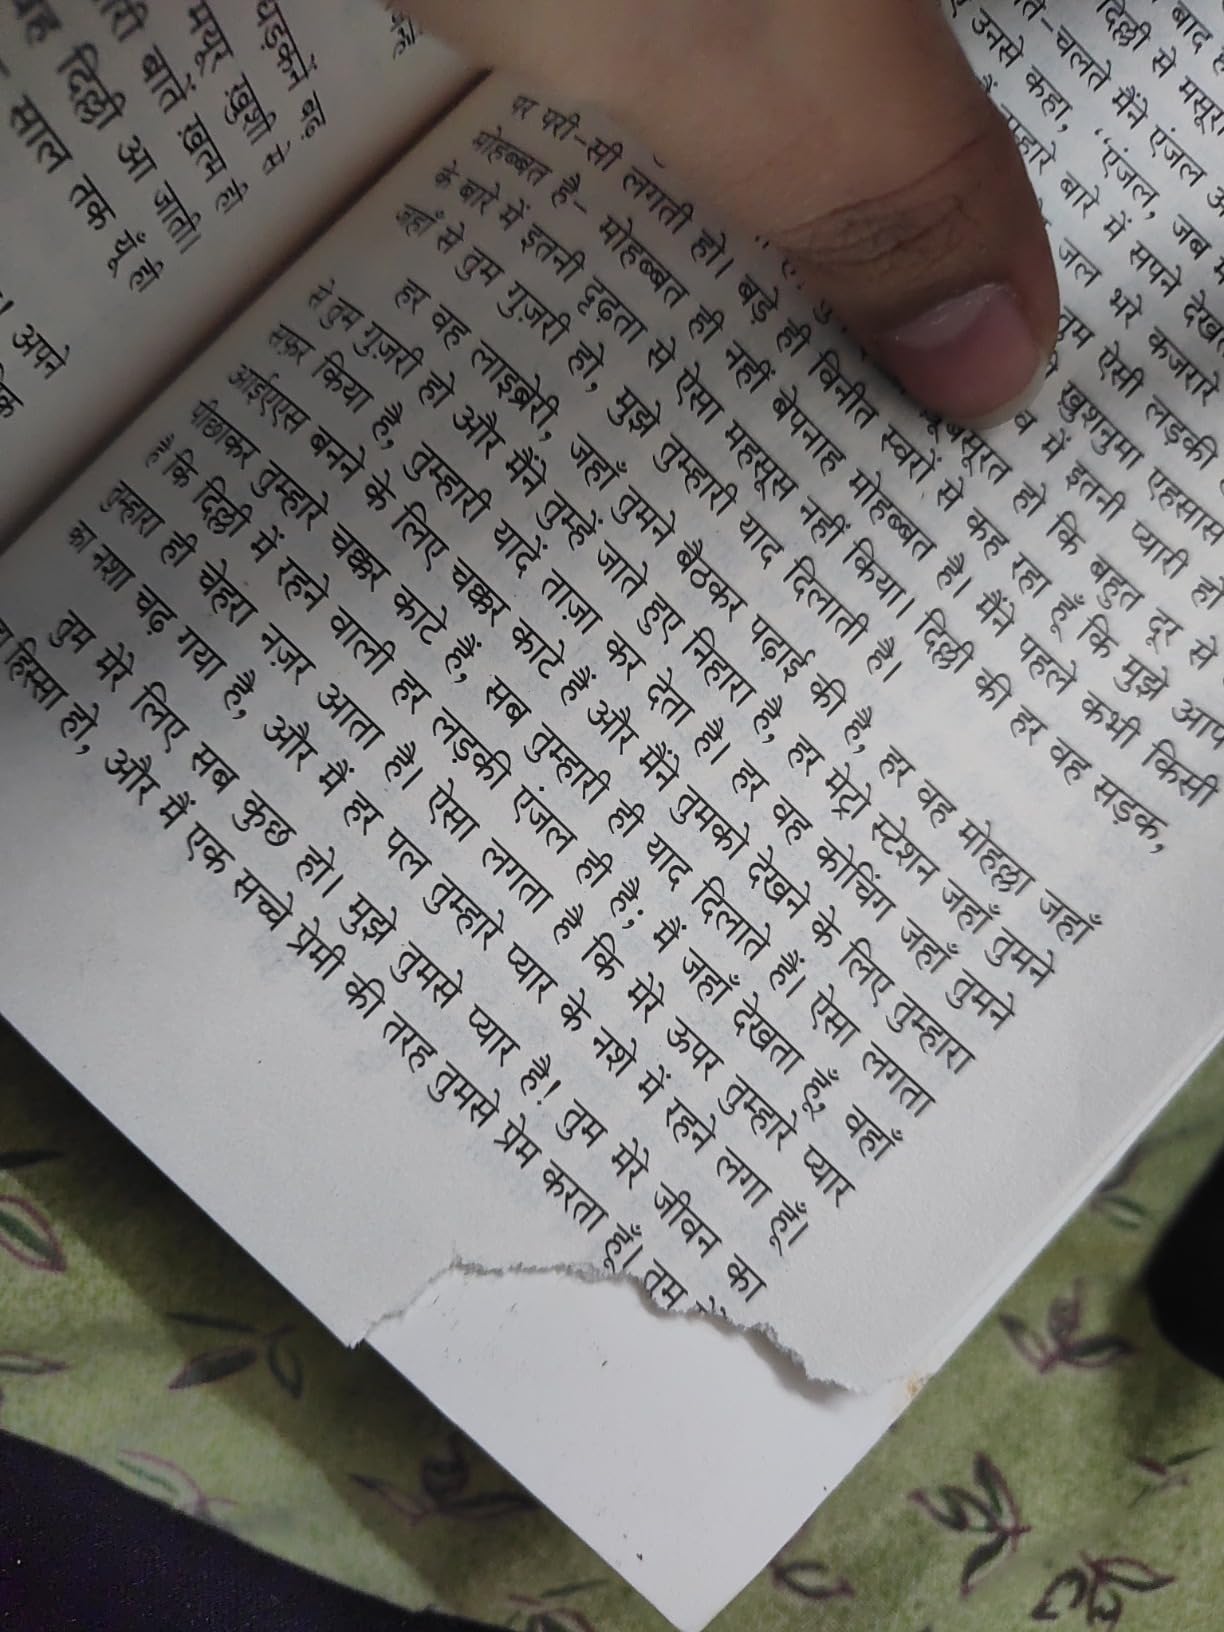 धड़कनें बढ़
मयूर ख़ुशी से
बातें ख़त्म ही
दिल्ली आ जाती।
साल तक यूँ ही
अपने
बाद
दिल्ली से
चलते मैंने एंजल
उनसे कहा, “एंजल, जब
बारे में सपने
जल भरे कजरारे
तुम ऐसी लड़की
ख़ुशनुमा एहसास
में इतनी प्यारी हो
हो कि बहुत दूर से
पर परी-सी लगती हो। बड़े ही विनीत स्वरों से कह रहा हूँ कि मुझे आप
मोहब्बत है- मोहब्बत ही नहीं बेपनाह मोहब्बत है। मैंने पहले कभी किसी
के बारे में इतनी दृढ़ता से ऐसा महसूस नहीं किया। दिल्ली की हर वह सड़क,
जहाँ से तुम गुज़री हो, मुझे तुम्हारी याद दिलाती है।
हर वह लाइब्रेरी, जहाँ तुमने बैठकर पढ़ाई की है, हर वह मोहल्ला जहाँ
से तुम गुज़री हो और मैंने तुम्हें जाते हुए निहारा है, हर मेट्रो स्टेशन जहाँ तुमने
सफ़र किया है, तुम्हारी यादें ताज़ा कर देता है। हर वह कोचिंग जहाँ तुमने
आईएएस बनने के लिए चक्कर काटे हैं और मैंने तुमको देखने के लिए तुम्हारा
पीछाकर तुम्हारे चक्कर काटे हैं, सब तुम्हारी ही याद दिलाते हैं। ऐसा लगता
है कि दिल्ली में रहने वाली हर लड़की एंजल ही है; मैं जहाँ देखता हूँ, वहाँ
तुम्हारा ही चेहरा नज़र आता है। ऐसा लगता है कि मेरे ऊपर तुम्हारे प्यार
का नशा चढ़ गया है, और मैं हर पल तुम्हारे प्यार के नशे में रहने लगा हूँ।
तुम मेरे लिए सब कुछ हो। मुझे तुमसे प्यार है! तुम मेरे जीवन का
हिस्सा हो, और मैं एक सच्चे प्रेमी की तरह तुमसे प्रेम करता हूँ। तुम